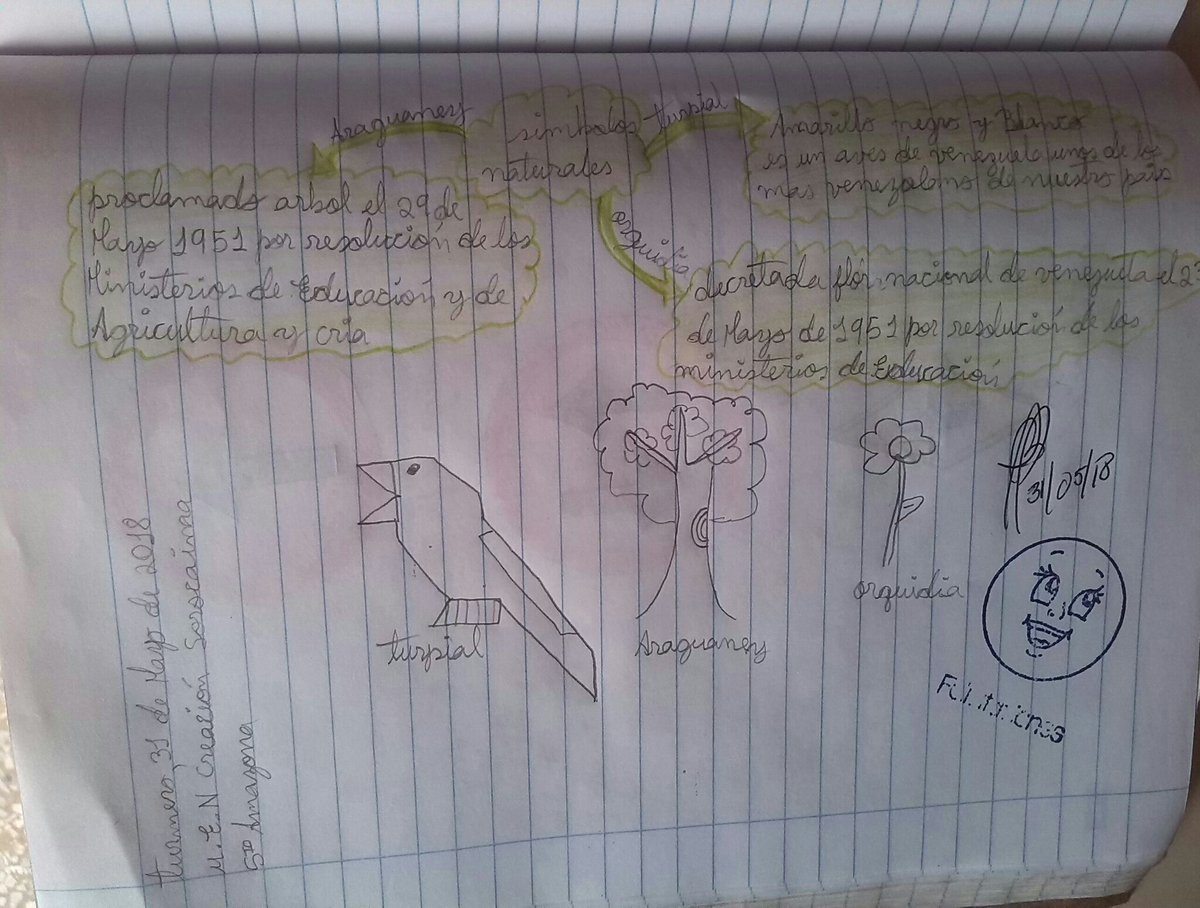 simbolos
naturales
Araguaney
proclamado arbol el 29 de
Mayo 1951 por resolución de los
Ministerios de Educación y de
Agricultura y cria
turpial
Amarillo negro y Blanco
es un aves de venezuela unos de los
mas venezolano de nuestro pais
orquidia
decretada flór nacional de venezuela el 2
de Mayo de 1951 por resolución de los
ministerios de Educación
turpial
Araguaney
orquidia
31/05/18
turmero 31 de Mayo de 2018
U.E.N Creación Sorocaima
5to Amazona